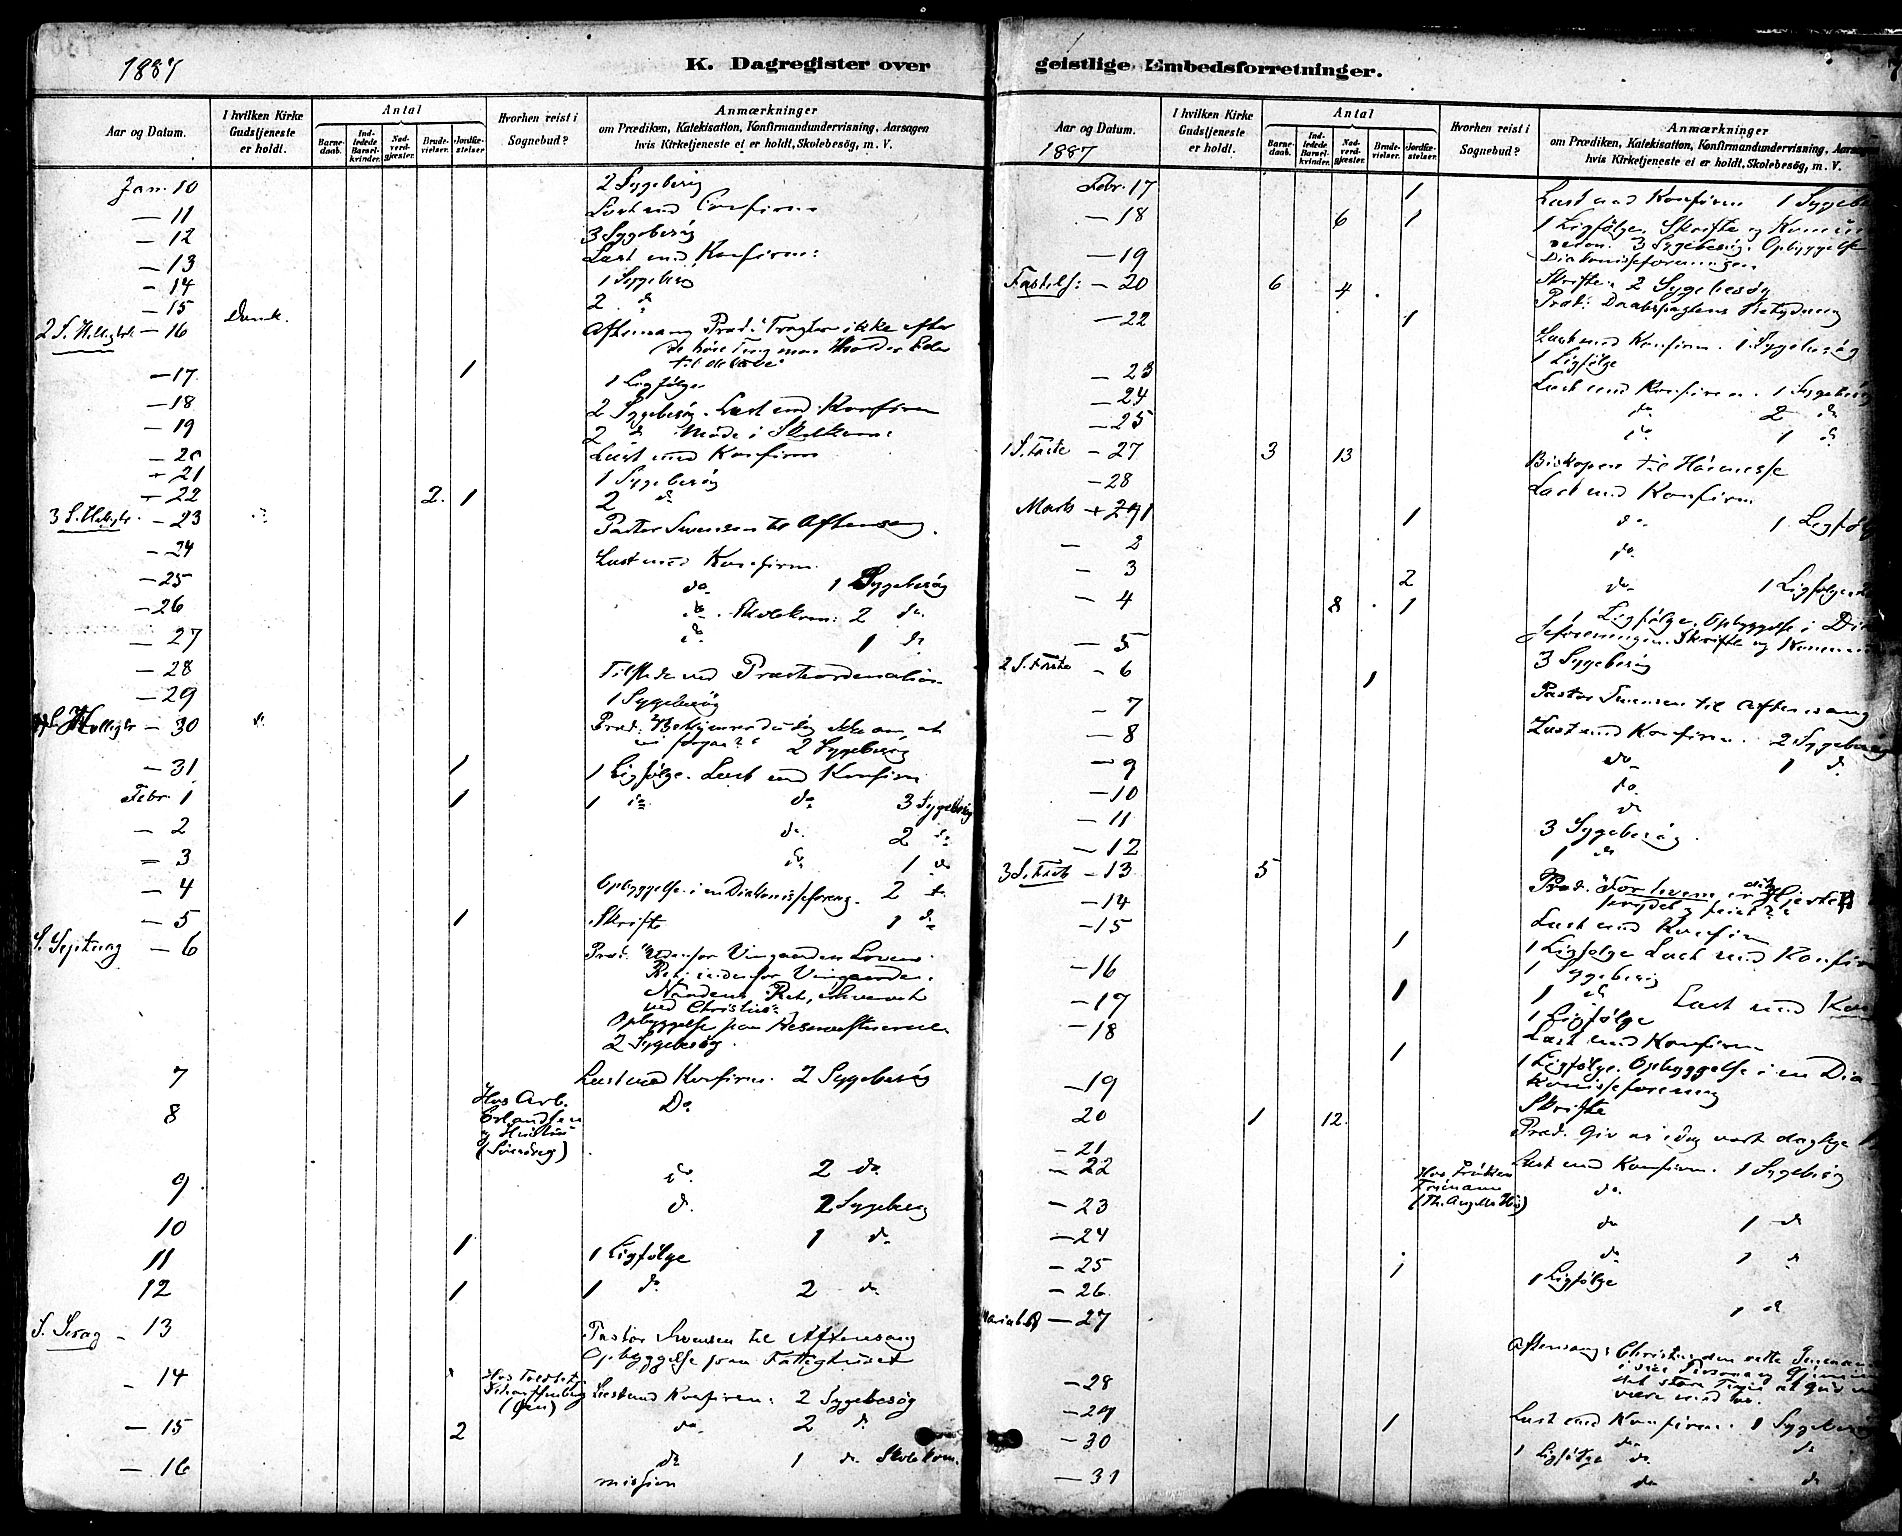 1887
K. Dagregister over
Aar og Datum.
I hvilken Kirke Gudstjeneste er holdt.
Antal
Barnedaab.
Indledede Barselkvinder.
Nadverdgjester.
Brudevielser.
Jordfæstelser
Hvorhen reist i Sognebud?
Anmærkninger
om Prædiken, Katekisation, Konfirmandundervisning, Aarsagen
hvis Kirketjeneste ei er holdt, Skolebesøg, m. V.
Jan. 10 2 Sygebesøg
— 11 Læst med Confirm
— 12 3 Sygebesøg
— 13 Læst med Konfirm:
— 14 1 Sygebesøg
— 15 2 do
2 S. Helligtr. — 16 Domk. Aftensang Præd: Tragter ikke efter
de høie Ting men Holder Eder
til de lave
— 17 1 1 Ligfølge
— 18 2 Sygebesøg. Læst med Konfirm
— 19 2 do Møde i Skolkom:
— 20 Læst med Konfirm
— 21 1 Sygebesøg
— 22 2. 1 2 do
3 S. Helligtr. — 23 Pastor Svensen til Aftensang.
— 24 Læst med Konfirm.
— 25 do 1 Sygebesøg
— 26 do. Skolekom: 2 do.
— 27 do 1 do
— 28 Tilstede ved Præsteordination
— 29 1 Sygebesøg
4 S. Helligtr — 30 do Præd: "Bekymrer du dig ikke om, at
vi forgaa?" 2 Sygebesøg
— 31 1 1 Ligfølge. Læst med Konfirm
Febr. 1 1 1 do do 3 Sygebesøg
— 2 do. 2 do
— 3 do 1 do
— 4 Opbyggelse i en Diakonisseforeng. 2 do
— 5 1 Skrifte 1 do
S. Septuag — 6 Præd: "Udenfor Vingaarden Lovens
Ret: indenfor Vingaarden
Naadens Ret, erhvervet
ved Christus"
Opbyggelse paa
2 Sygebesøg.
7 Læst med Konfirm. 2 Sygebesøg
8 Hos Arb.
Erlandsen
og Hustru
Do
9 do. 2 do
10 do. 2 Sygebesøg
11 1 1 Ligfølge 1 do
12 1 1 do 2 do
S. Sexag — 13 Pastor Svensen til Aftensang
Opbyggelse paa Fattighuset
— 14 Læst med Konfirm: 2 Sygebesøg
— 15 2 do. 2 do
— 16 do 1 do Skolekom-
mission
geistlige Embedsforretninger.
Aar og Datum.
1887
I hvilken Kirke Gudstjeneste er holdt.
Antal
Barnedaab.
Indledede Barselkvinder.
Nadverdgjester.
Brudevielser.
Jordfæstelser.
Hvorhen reist i Sognebud?
Anmærkninger
om Prædiken, Katekisation, Konfirmandundervisning, Aarsagen
hvis Kirketjeneste ei er holdt, Skolebesøg, m. V.
Febr. 17 1 Læst med Konfirm 1 Sygebe
— 18 6 1 1 Ligfølge. Skrifte og Kommun
3 Sygebesøg. Opbyggelse
Diakonisseforeningen
— 19 Skrifte. 2 Sygebesøg
Fastels: — 20 6 4 Præd: Daabspagtens Betydning
— 22 1 Læst med Konfirm. 1 Sygebesøg
1 Ligfølge
— 23 Læst med Konfirm. 1 Sygebesøg
— 24 do 2 do
— 25 do 1 do
1 S. Faste — 27 3 13 Biskopen til Høimesse
— 28 Læst med Konfirm
Marts 1 1 do. 1 Ligføl
— 2 do.
— 3 2 do 1 Ligfølge
— 4 8 1 1 Ligfølge. Opbyggelse i Dia
seforeningen. Skrifte og Kommun
— 5 3 Sygebesøg
2 S. Faste — 6 1 Pastor Svensen til Aftensang
— 7 Læst med Konfirm. 2 Sygebesøg
— 8 do 1 do
— 9 do.
— 10 do
— 11 3 Sygebesøg.
— 12 1 do
3 S. Faste — 13 5 Præd. "For hvem er dit Hjerte
prydet og feiet?"
— 14 Læst med Konfirm
— 15 1 1 Ligfølge Læst med Konfirm
— 16 1 Sygebesøg
— 17 1 1 do Læst med Kon
1 Ligfølge
— 18 Læst med Konfirm
1 1 Ligfølge. Opbyggelse i en Dia-
konisseforening
— 19 Skrifte
20 1 12. Præd. Giv os idag vort daglige
— 21 Læst med Konfirm. 1 Sygebesøg
— 22 Hos Frøken
(Th. Angells Hus)
do.
— 23 do 1 do
— 24 do 1 do
— 25 1 1 Ligfølge
— 26 1 do
Mariæ B — 27 Aftensang: Christus den rette
— 28 Læst med Konfirm. 1 Sygebesø
— 29 do do
— 30 1 1 Ligfølge do
— 31 do do